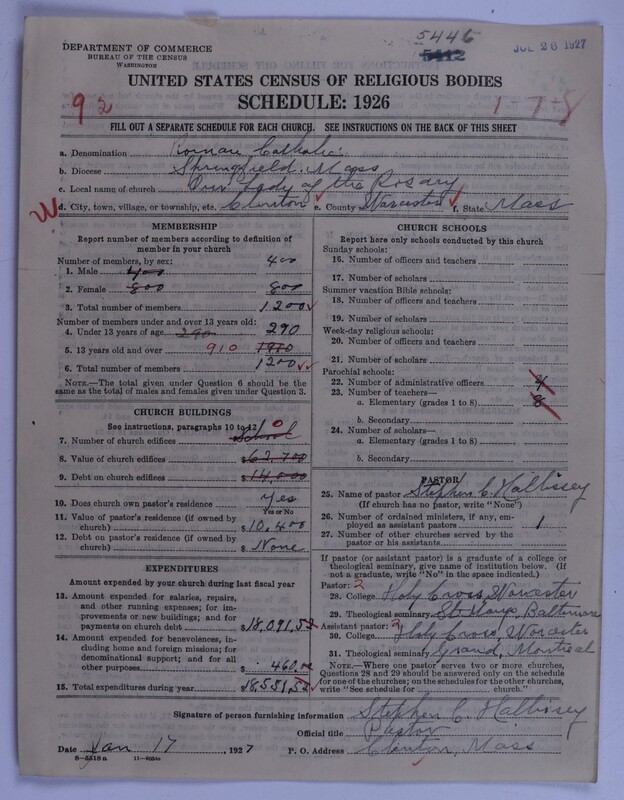 5446
5412
JUL 26 1927
DEPARTMENT OF COMMERCE
BUREAU OF THE CENSUS
WASHINGTON
UNITED STATES CENSUS OF RELIGIOUS BODIES
SCHEDULE: 1926
92
1-7-8
FILL OUT A SEPARATE SCHEDULE FOR EACH CHURCH. SEE INSTRUCTIONS ON THE BACK OF THIS SHEET
a. Denomination Roman Catholic
b. Diocese Springfield. Mass
c. Local name of church Our Lady of the Rosary
W
d. City, town, village, or township, etc. Clinton e. County Worcester f. State Mass
MEMBERSHIP
Report number of members according to definition of member in your church
Number of members, by sex: 400
1. Male 400
2. Female 800 800
3. Total number of members 1200
Number of members under and over 13 years old:
4. Under 13 years of age 290 290
5. 13 years old and over 910 1910
6. Total number of members 1200
NOTE.—The total given under Question 6 should be the same as the total of males and females given under Question 3.
CHURCH BUILDINGS
See instructions, paragraphs 10 to 12
7. Number of church edifices School 0
8. Value of church edifices $62,700
9. Debt on church edifices $14000
10. Does church own pastor's residence Yes
Yes or No
11. Value of pastor's residence (if owned by church) $10,400
12. Debt on pastor's residence (if owned by church) $ None
EXPENDITURES
Amount expended by your church during last fiscal year
13. Amount expended for salaries, repairs, and other running expenses; for improvements or new buildings; and for payments on church debt $18,091,52
14. Amount expended for benevolences, including home and foreign missions; for denominational support; and for all other purposes $ 460.00
15. Total expenditures during year $18,551,52
CHURCH SCHOOLS
Report here only schools conducted by this church
Sunday schools:
16. Number of officers and teachers
17. Number of scholars
Summer vacation Bible schools:
18. Number of officers and teachers
19. Number of scholars
Week-day religious schools:
20. Number of officers and teachers
21. Number of scholars
Parochial schools:
22. Number of administrative officers 4
23. Number of teachers—
a. Elementary (grades 1 to 8) 8
b. Secondary
24. Number of scholars—
a. Elementary (grades 1 to 8)
b. Secondary
PASTOR
25. Name of pastor Stephen C. Hallissey
(If church has no pastor, write "None")
26. Number of ordained ministers, if any, employed as assistant pastors 1
27. Number of other churches served by the pastor or his assistants
If pastor (or assistant pastor) is a graduate of a college or theological seminary, give name of institution below. (If not a graduate, write "No" in the space indicated.)
Pastor: 2
28. College Holy Cross, Worcester
29. Theological seminary St. Marys, Baltimore
Assistant pastor: 2
30. College Holy Cross, Worcester
31. Theological seminary Grand, Montreal
NOTE.—Where one pastor serves two or more churches, Questions 28 and 29 should be answered only on the schedule for one of the churches; on the schedules for the other churches, write "See schedule for church."
Signature of person furnishing information Stephen C. Hallissey
Official title Pastor
Date Jan 17 1927 P. O. Address Clinton, Mass
8-5518a